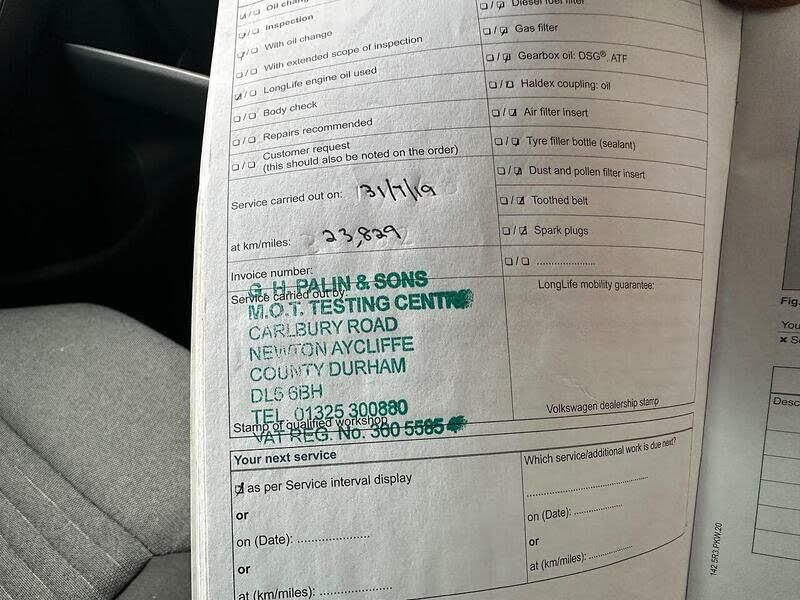 Oil chang
Inspection
With oil change
With extended scope of inspection
LongLife engine oil used
Body check
Repairs recommended
Customer request
(this should also be noted on the order)
Service carried out on: 31/7/19
at km/miles: 23,829
Invoice number:
Service carried out by:
G. H. PALIN & SONS
M.O.T. TESTING CENTRE
CARLBURY ROAD
NEWTON AYCLIFFE
COUNTY DURHAM
DL5 6BH
TEL. 01325 300880
Stamp of qualified workshop
VAT REG. No. 360 5585
Diesel fuel filter
Gas filter
Gearbox oil: DSG®, ATF
Haldex coupling: oil
Air filter insert
Tyre filler bottle (sealant)
Dust and pollen filter insert
Toothed belt
Spark plugs
....................
LongLife mobility guarantee:
Volkswagen dealership stamp
Your next service
as per Service interval display
or
on (Date): ....................
or
at (km/miles): ....................
Which service/additional work is due next?
..............................
on (Date): ..............
or
at (km/miles): ............
142.5R3.PKW.20
Fig.
You
Desc